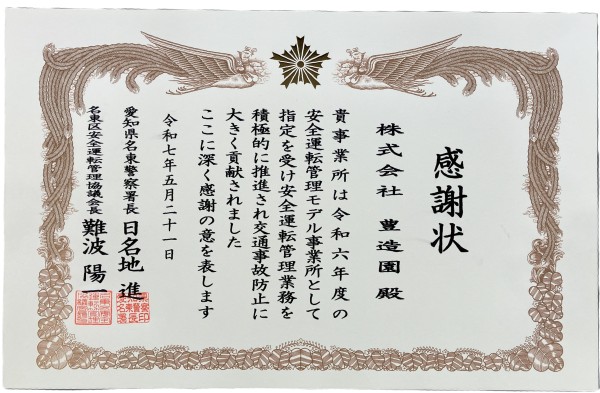 感謝状
株式会社 豊造園 殿
貴事業所は令和六年度の
安全運転管理モデル事業所として
指定を受け安全運転管理業務を
積極的に推進され交通事故防止に
大きく貢献されました
ここに深く感謝の意を表します
令和七年五月二十一日
愛知県名東警察署長 日名地 進
名東区安全運転管理協議会長 難波 陽一